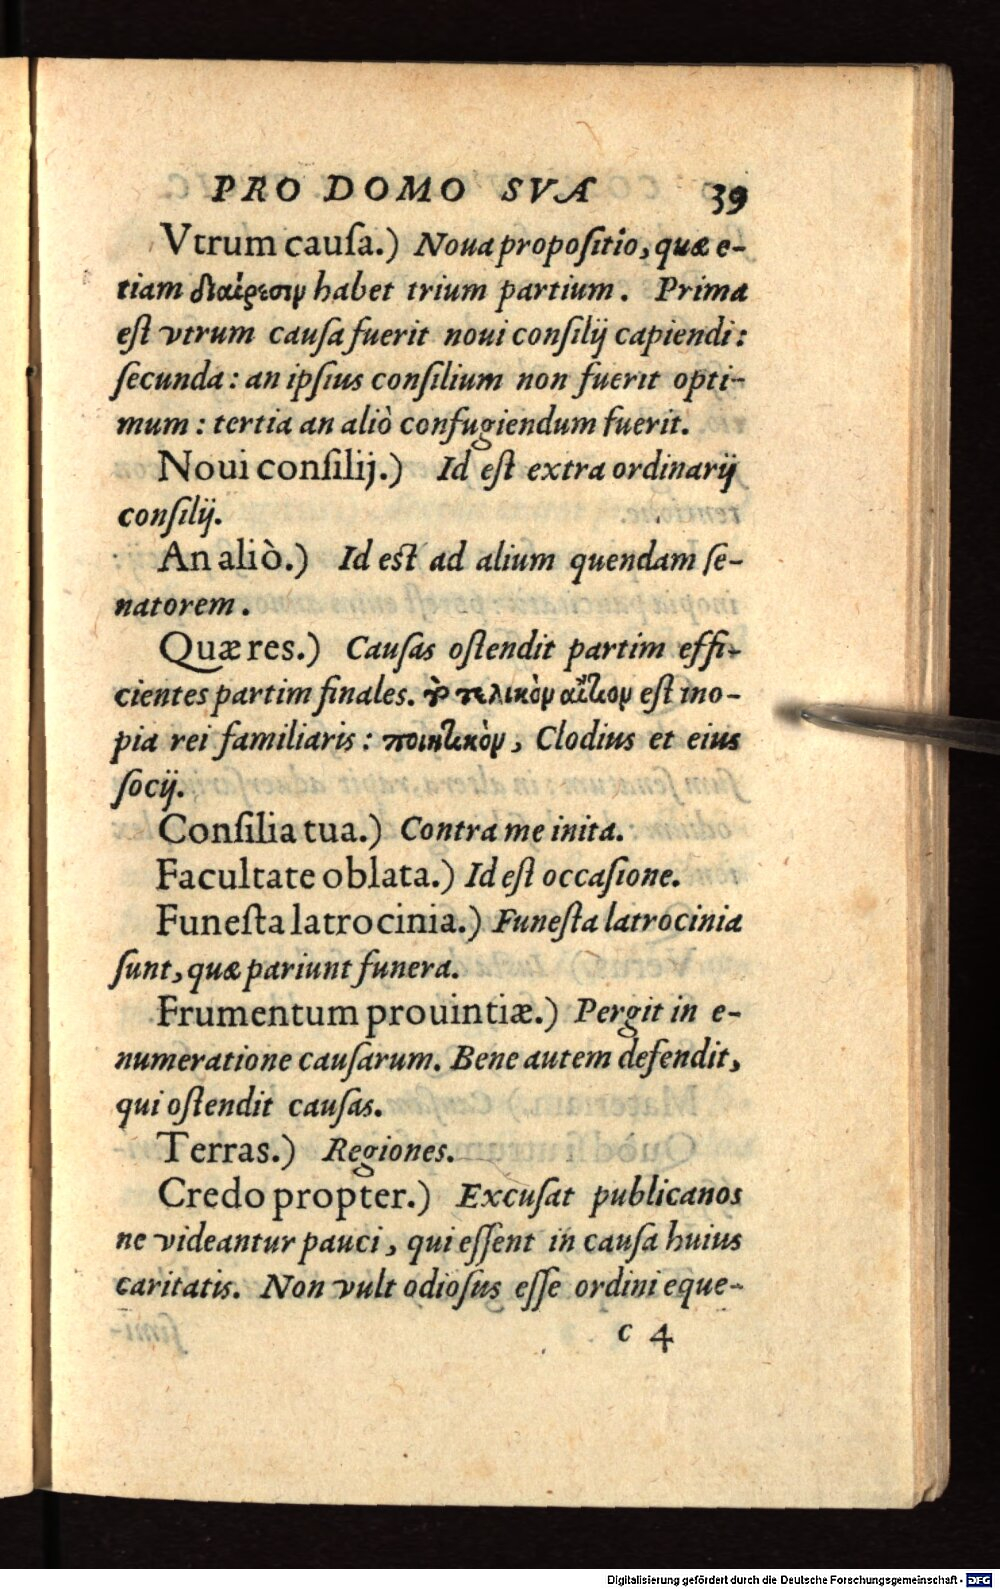 PRO DOMO SVA 39
Vtrum cauſa.) Noua propoſitio, quæ e-
tiam διαίρεσιν habet trium partium. Prima
eſt vtrum cauſa fuerit noui conſilij capiendi:
ſecunda: an ipſius conſilium non fuerit opti-
mum: tertia an aliò confugiendum fuerit.
Noui conſilij.) Id eſt extra ordinarij
conſilij.
An aliò.) Id est ad alium quendam ſe-
natorem.
Quæ res.) Cauſas oſtendit partim effi-
cientes partim finales. τὸ τελικὸν αἴτιον eſt ino-
pia rei familiaris: ποιητικὸν, Clodius et eius
ſocij.
Conſilia tua.) Contra me inita.
Facultate oblata.) Id eſt occaſione.
Funeſta latrocinia.) Funeſta latrocinia
ſunt, quæ pariunt funera.
Frumentum prouintiæ.) Pergit in e-
numeratione cauſarum. Bene autem defendit,
qui oſtendit cauſas.
Terras.) Regiones.
Credo propter.) Excuſat publicanos
ne videantur pauci, qui eſſent in cauſa huius
caritatis. Non vult odioſus eſſe ordini eque-
c 4
Digitalisierung gefördert durch die Deutsche Forschungsgemeinschaft - DFG